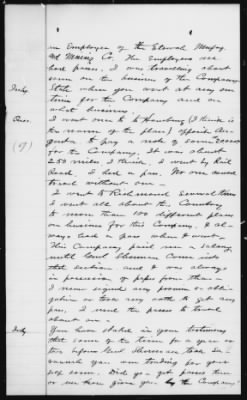 an Employee of the Etowah Manfg.
and Mining Co. The Employees all
had passes. I was traveling about
some on the business of the Company
Inty. State when you went at any one
time for the Company and on
what business
Ans. I went once to to Hamburg (I think is
the name of the place) opposite Au-
gusta to pay a sack of some $20000
for the Company. It was about
250 miles I think. I went by Rail
Road. I had a pass. No one could
travel without one.
I went to Richmond several times
I went all about the Country
to more than 100 different places
on business for this Company, & al-
ways had a pass when I went.
This Company paid me a salary
until Genl Sherman came into
that section and I was always
in possession of papers from them.
I never signed any promise or obli-
gation or took any oath to get any
pass. I used the passes to travel
about on.
Inty You have stated in your testimony
that some of the time for a year or
two before Genl Sherman took Sa-
vannah you was trading for your
self some. Did you get passes then
or was those given you by the Company